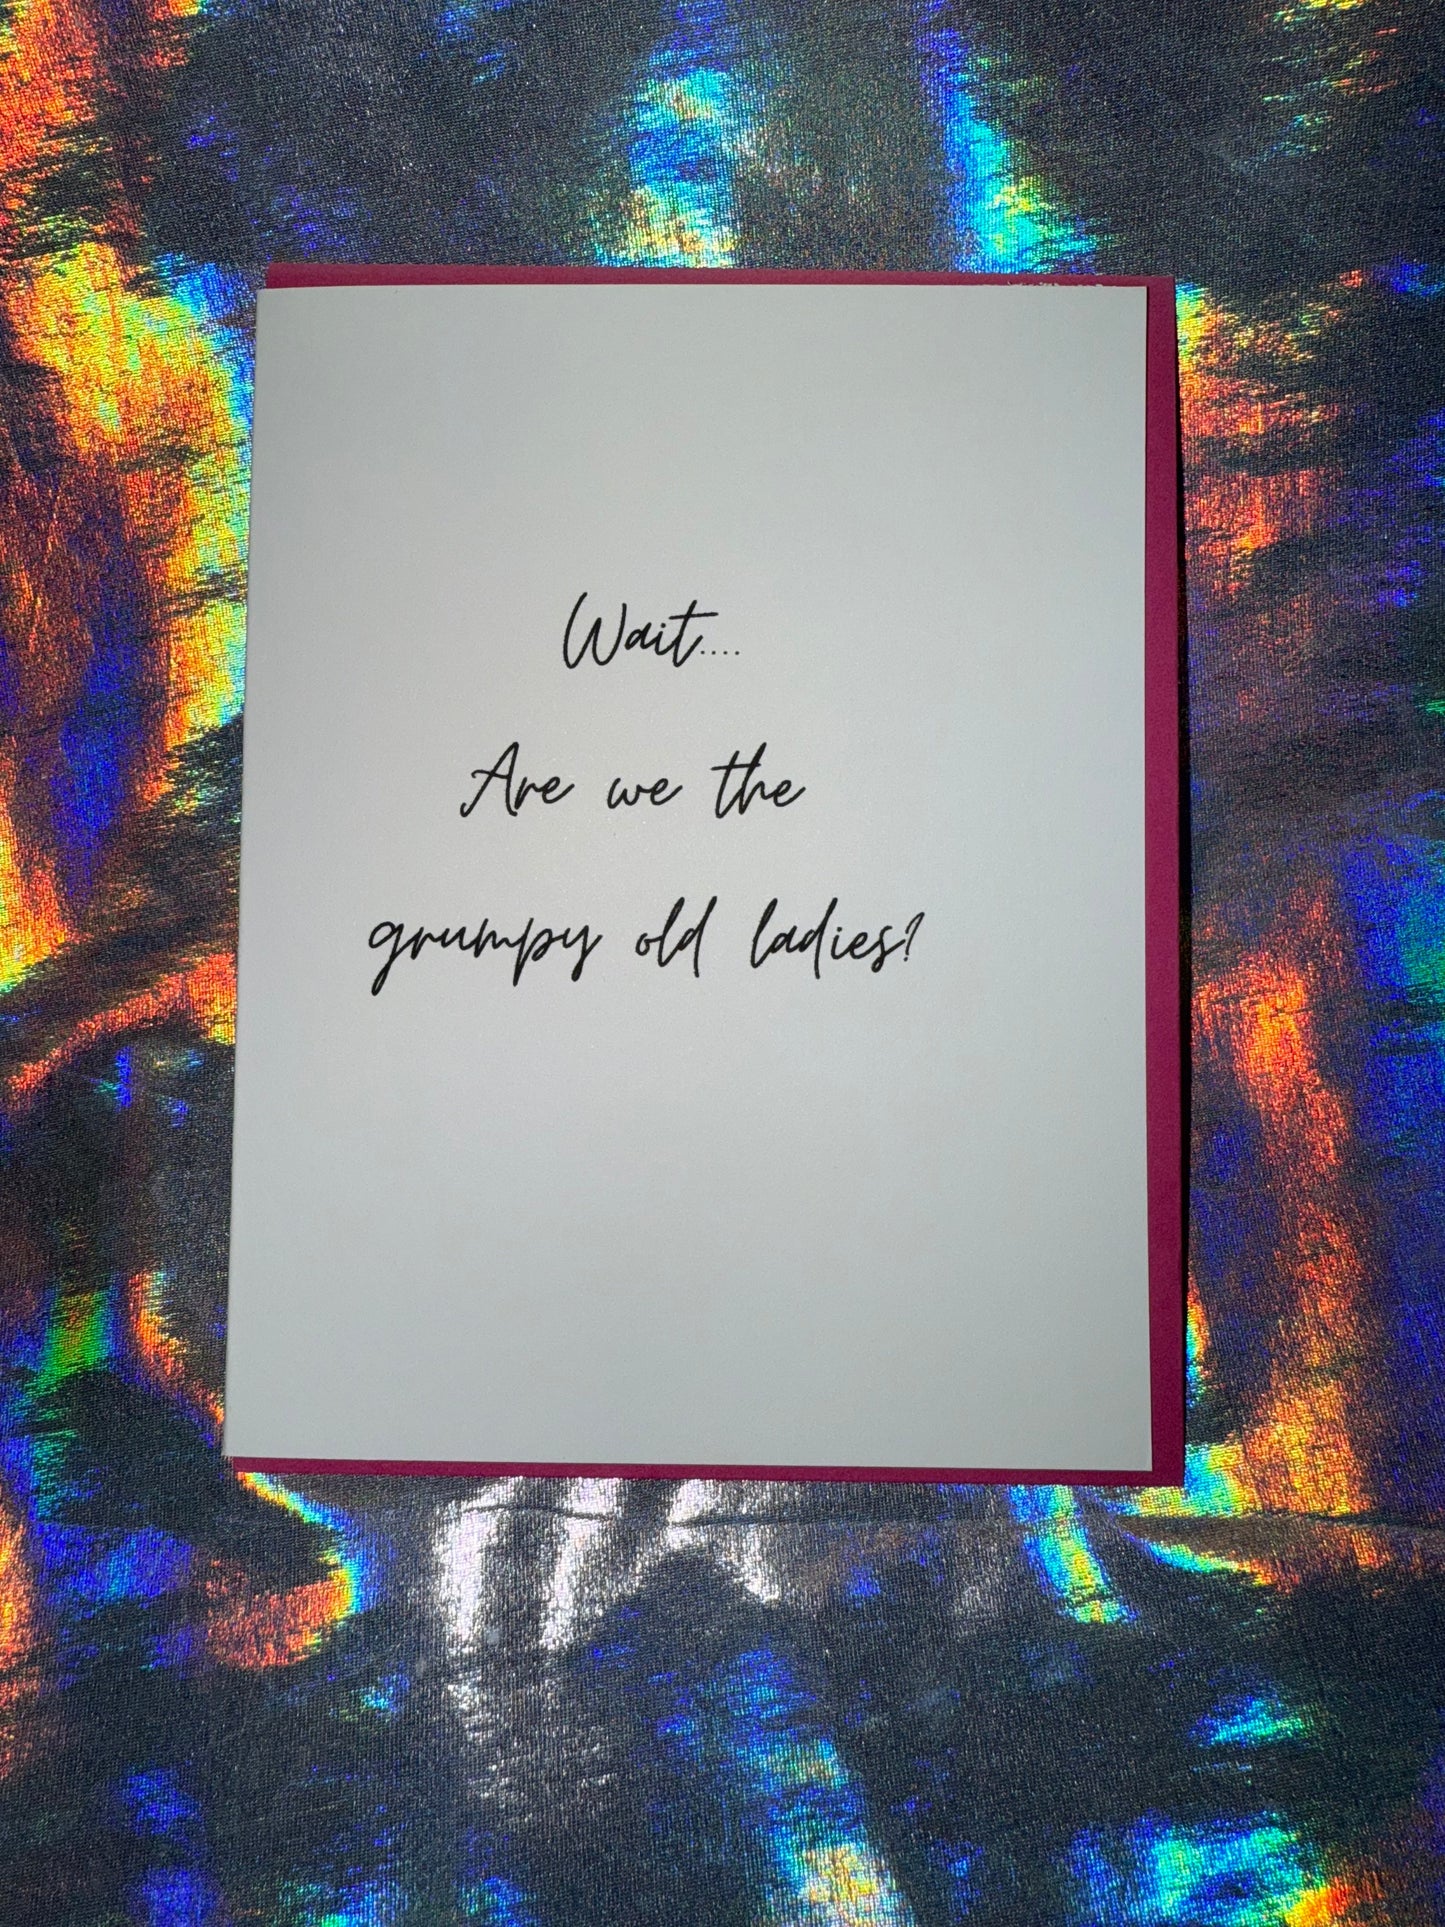 Wait....
Are we the
grumpy old ladies?